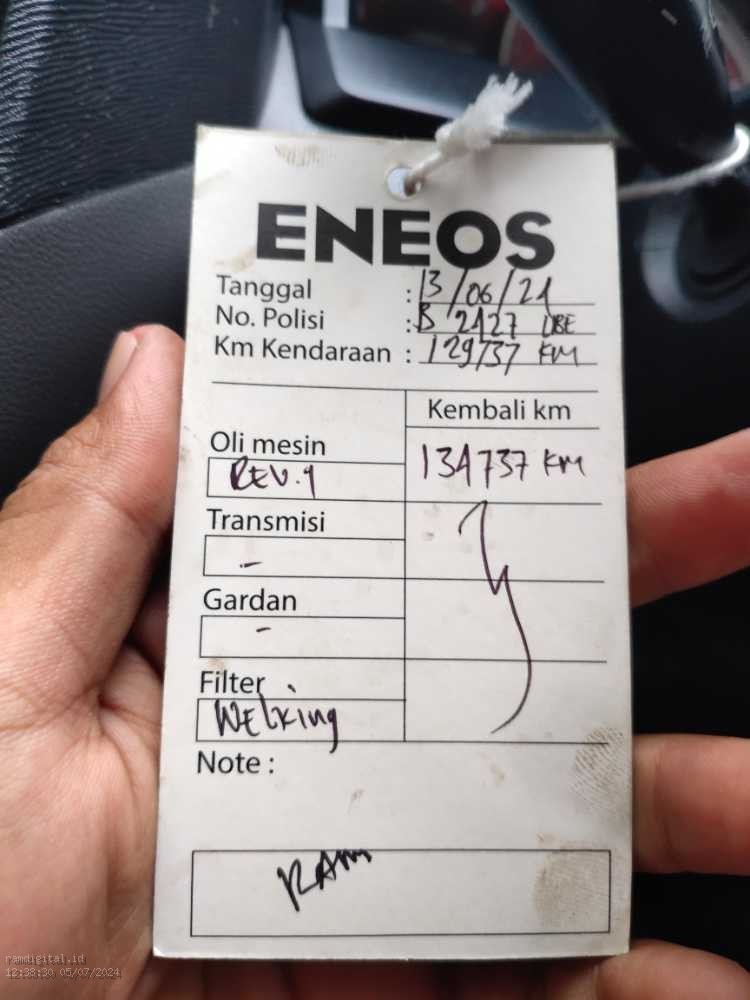 ENEOS
Tanggal : 13/06/24
No. Polisi : B 2427 UBE
Km Kendaraan : 129737 KM
Kembali km
Oli mesin
134737 KM
REV.9
Transmisi
-
Gardan
-
Filter
WELKing
Note :
RAM
ramdigital.id
12:38:30 05/07/2024